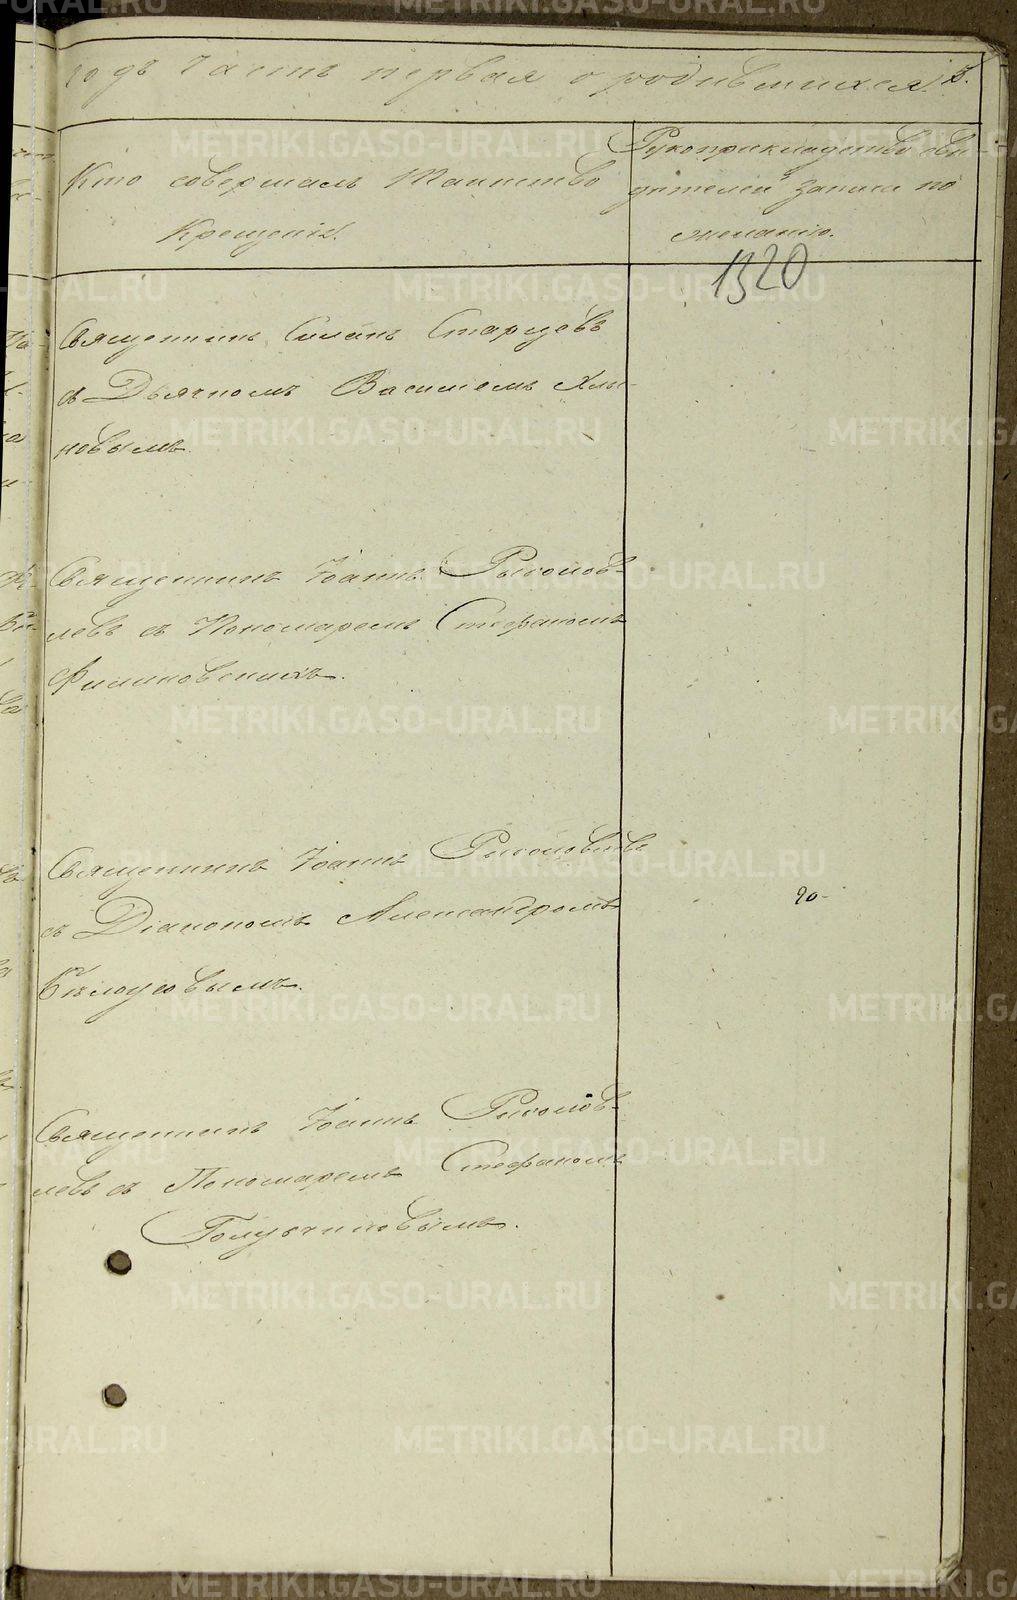 годъ часть первая о родившихся. 3.
Кто совершалъ Таинство
Крещенія.
Рукоприкладство сви-
дѣтелей записи по
желанію.
1320
Священникъ Симонъ Старцовъ
съ Дьячкомъ Василіемъ Хлы-
новымъ
Священникъ Іоаннъ
левъ съ Пономаремъ Стефаномъ
Филиповскихъ.
Священникъ Іоаннъ
съ Діакономъ Александромъ
Бѣлоусовымъ.
20-
Священникъ Іоаннъ
левъ съ Пономаремъ Стефаномъ
Голубчиковымъ.
METRIKI.GASO-URAL.RU